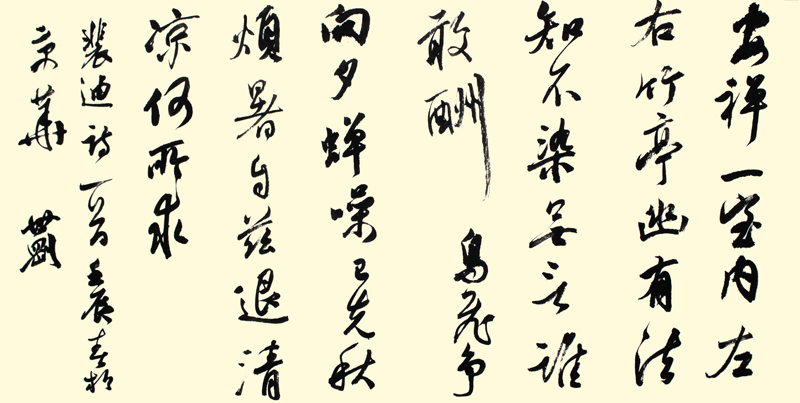 安禅一室内左
右竹亭幽有法
知不染无言谁
敢酬 鸟飞争
向夕蝉噪已先秋
煩暑自兹退清
凉何所求
裴迪诗一首壬辰春於
京華